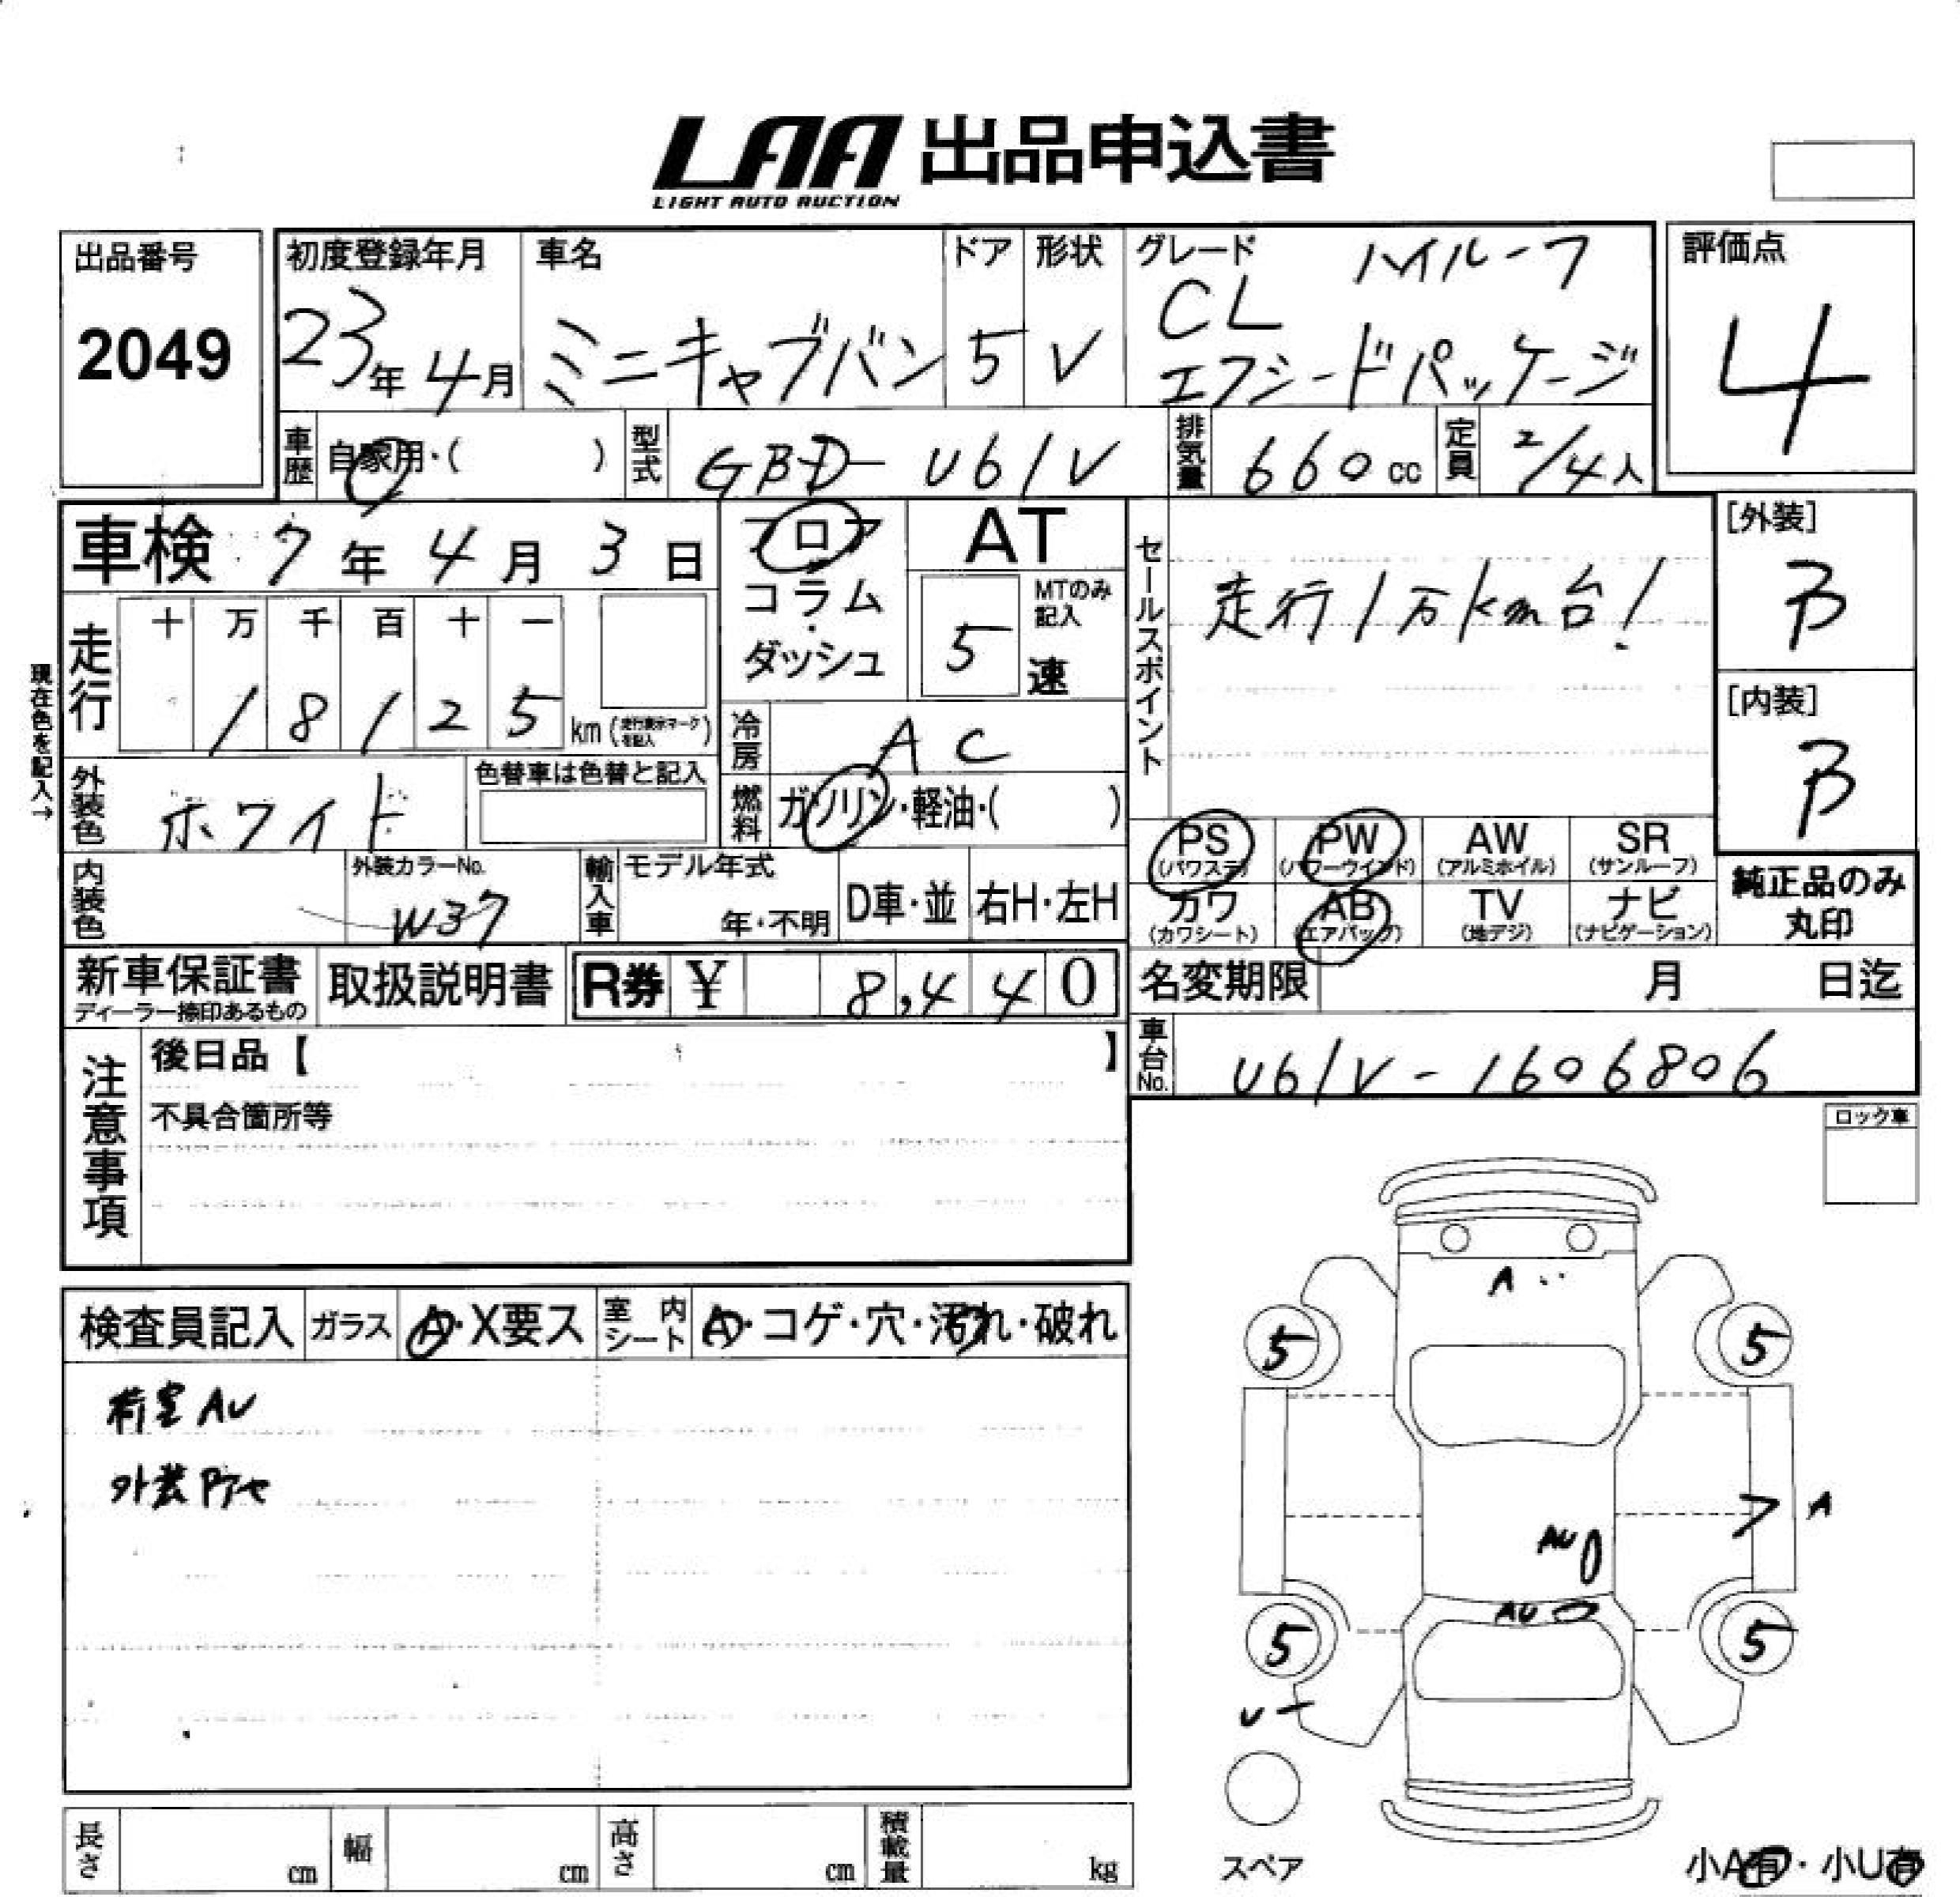 LAA 出品申込書
LIGHT AUTO AUCTION
出品番号
2049
初度登録年月
23年 4月
車名
ミニキャブバン
ドア
5
形状
V
グレード ハイルーフ
CL
エクシードパッケージ
評価点
4
車歴 自家用・( )
型式 GBD-U61V
排気量 660 cc
定員 2/4人
車検 7年 4月 3日
フロア
コラム
・
ダッシュ
AT
MTのみ記入
5速
セールスポイント
走行1万km台!
[外装]
B
[内装]
B
現在色を記入→
走行
十 万 千 百 十 一
1 8 1 2 5 km (走行表示マークを記入)
冷房 AC
外装色 ホワイト
色替車は色替と記入
燃料 ガソリン・軽油・( )
PS (パワステ)
PW (パワーウインド)
AW (アルミホイル)
SR (サンルーフ)
カワ (カワシート)
AB (エアバック)
TV (地デジ)
ナビ (ナビゲーション)
純正品のみ
丸印
内装色
外装カラーNo.
W37
輸入車
モデル年式
年・不明
D車・並
右H・左H
新車保証書
ディーラー捺印あるもの
取扱説明書
R券 ¥ 8,440
名変期限 月 日迄
車台No. U61V-1606806
注意事項
後日品【 】
不具合箇所等
ロック車
検査員記入
ガラス A・X要ス
室内シート A・コゲ・穴・汚れ・破れ
荷室AU
A
5 5
A
AU
AU
5 5
U
スペア
小A有・小U有
長さ cm
幅 cm
高さ cm
積載量 kg